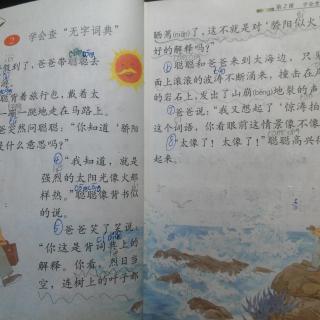 2 学会查“无字词典”
假到了，爸爸带聪聪去
聪背着旅行包，戴着太
一蹦一跳地走在马路上。
爸突然问聪聪：“你知道‘骄阳
是什么意思吗？”
④“我知道，就是
强烈的太阳光像火那
样热。”聪聪像背书似
的说。
⑤爸爸笑了笑说：
“你这是背词典上的
解释。你看，烈日当
空，连树上的叶子都
第2课 学会查
晒蔫(niān)了，这不就是对‘骄阳似火’
好的解释吗？”
⑥聪聪和爸爸来到大海边，只见
面上滚滚的波涛不断涌来，撞击在岸
的岩石上，发出了山崩(bēng)地裂的声
⑦爸爸说：“我又想起了‘惊涛拍
这个词语，你看眼前这情景像不像
⑧“太像了！太像了！”聪聪高兴得
起来。